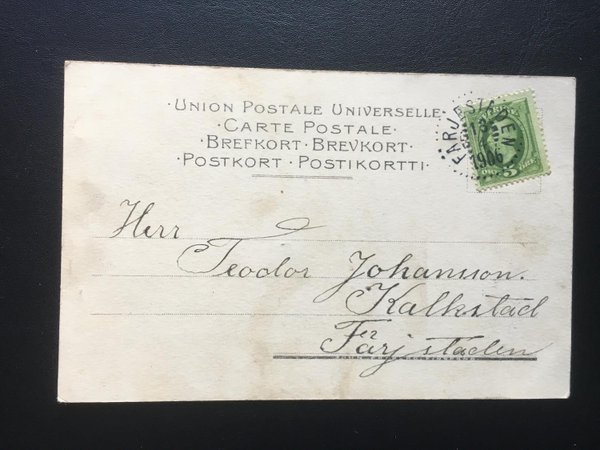 · UNION POSTALE UNIVERSELLE ·
· CARTE POSTALE ·
· BREFKORT · BREVKORT ·
· POSTKORT · POSTIKORTTI ·
FÄRJESTADEN
1906
5
Herr
Teodor Johansson.
Kalkstad
Färjstaden